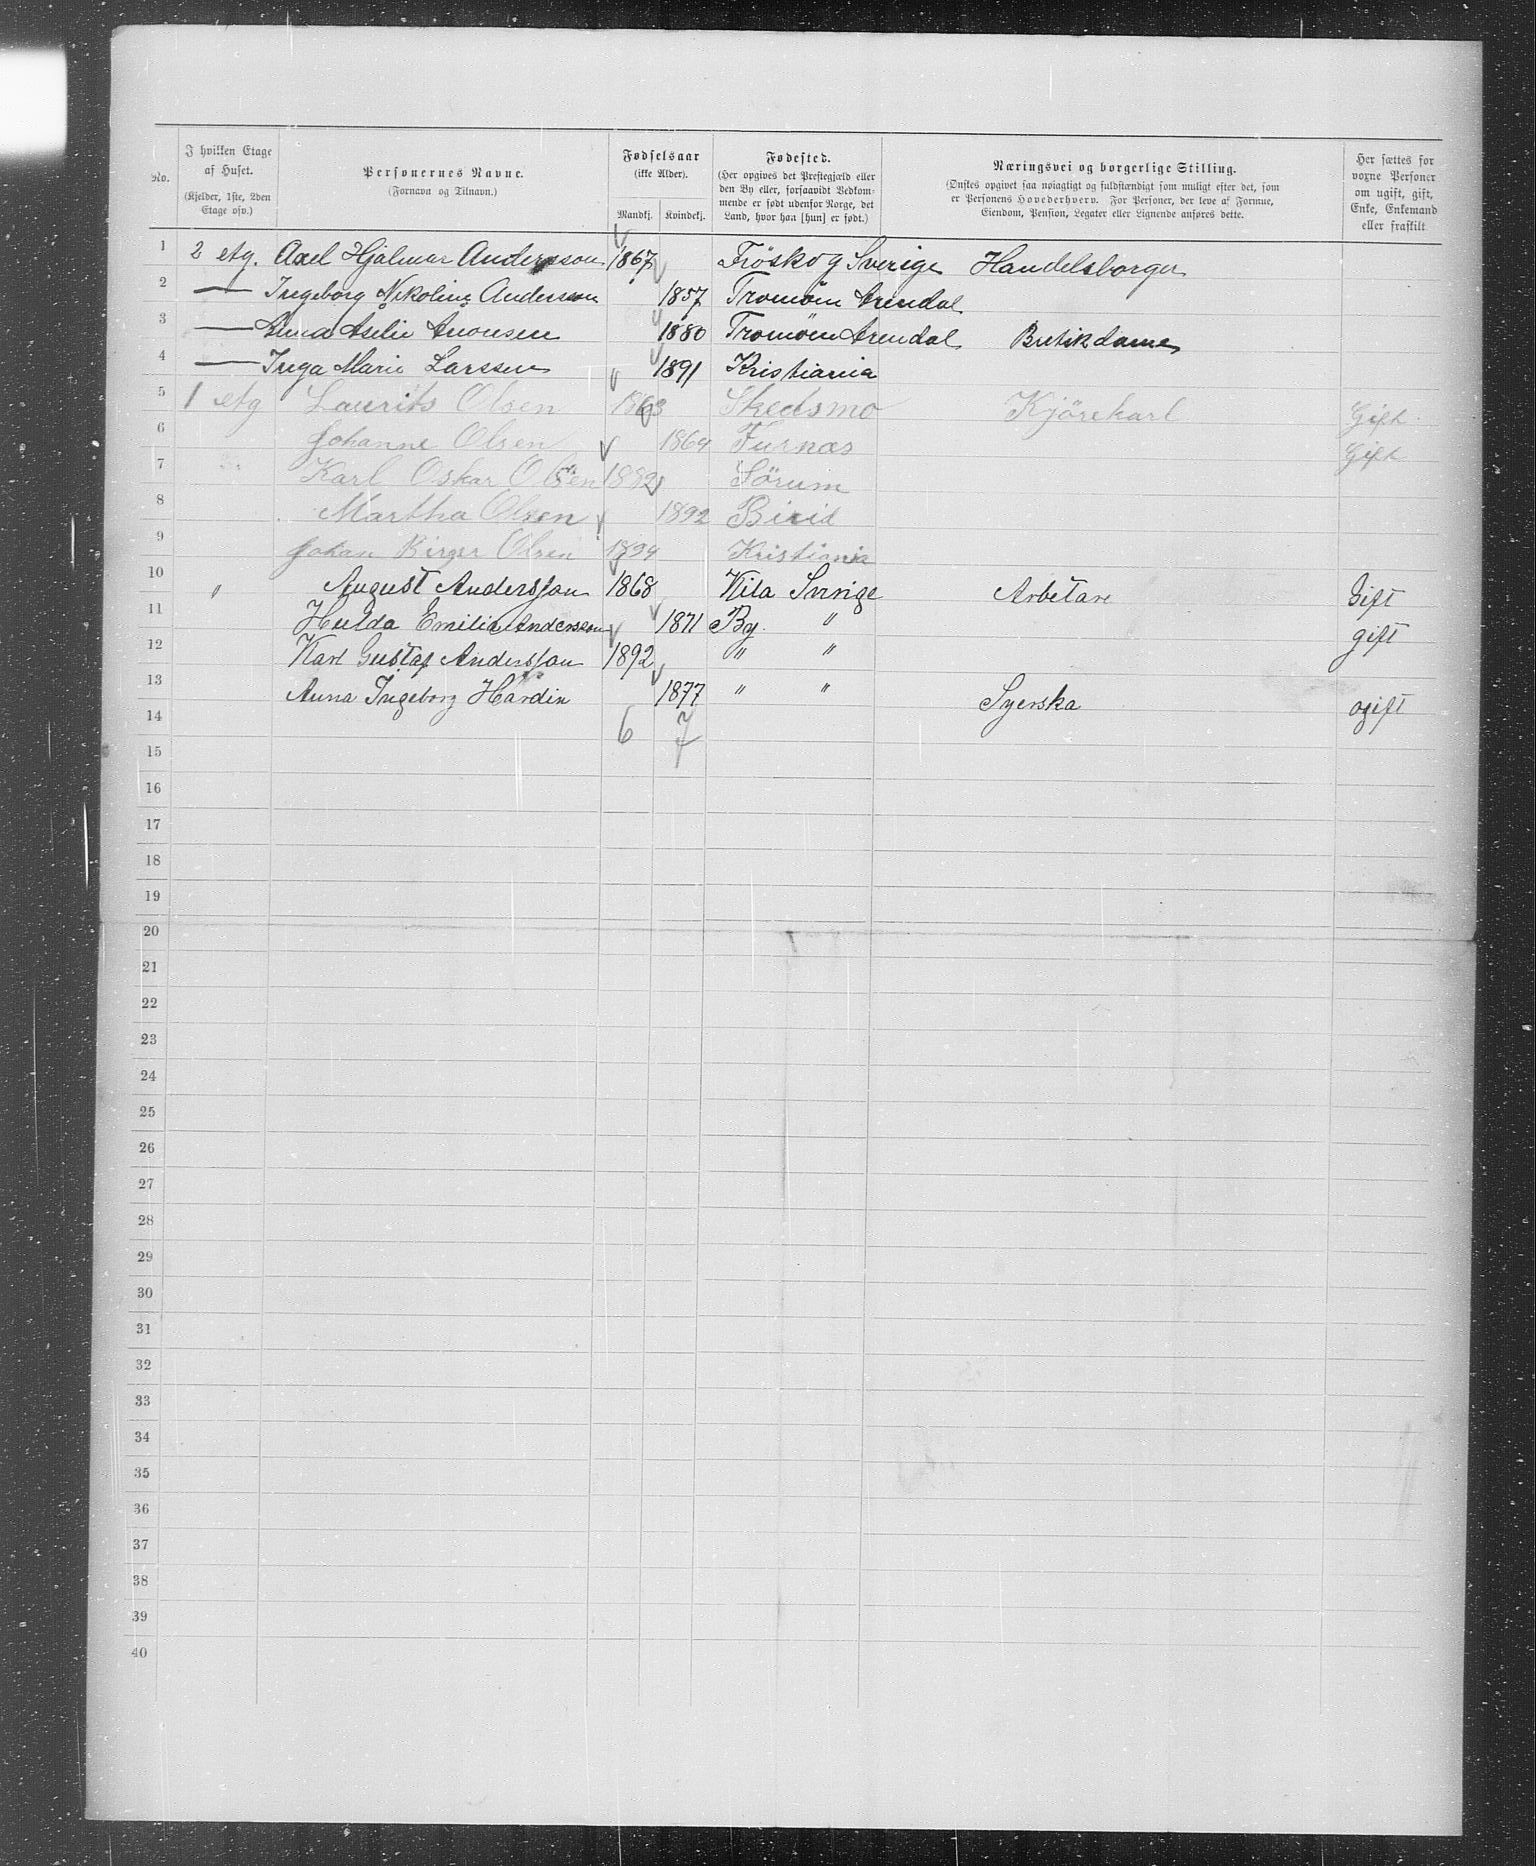 No. I hvilken Etage af Huset. (Kjelder, 1ste, 2den Etage osv.) Personernes Navne. (Fornavn og Tilnavn.) Fødselsaar (ikke Alder). Mandkj. Kvindekj. Fødested. (Her opgives det Prestegjæld eller den By eller, forsaavidt Vedkommende er født udenfor Norge, det Land, hvor han [hun] er født.) Næringsvei og borgerlige Stilling. (Ønskes opgivet saa nøiagtigt og fuldstændigt som muligt efter det, som er Personens Hovederhverv. For Personer, der leve af Formue, Eiendom, Pension, Legater eller Lignende anføres dette. Her sættes for voxne Personer om ugift, gift, Enke, Enkemand eller fraskilt
1 2 etg. Axel Hjalmar Andersson 1867 Fröskog Sverige Handelsborger
2 — Ingeborg Nikoline Andersson 1857 Tromöen Arendal
3 — 1880 Tromöen Arendal Butikdame
4 — Inga Marie Larssen 1891 Kristiania
5 1 etg Laurits Olsen 1863 Skedsmo Kjörekarl Gift
6 Johanne Olsen 1864 Furnæs Gift
7 Karl Oskar Olsen 1889 Sörum
8 Martha Olsen 1892 Birid
9 Johan Birger Olsen 1894 Kristiania
10 " August Andersson 1868 Kila Sverige Arbetare Gift
11 Hulda Emilia Andersson 1871 By " gift
12 Karl Gustaf Andersson 1892 " "
13 Anna Ingeborg Hardin 1877 " " Syerska ogift
14 6 7
15
16
17
18
19
20
21
22
23
24
25
26
27
28
29
30
31
32
33
34
35
36
37
38
39
40